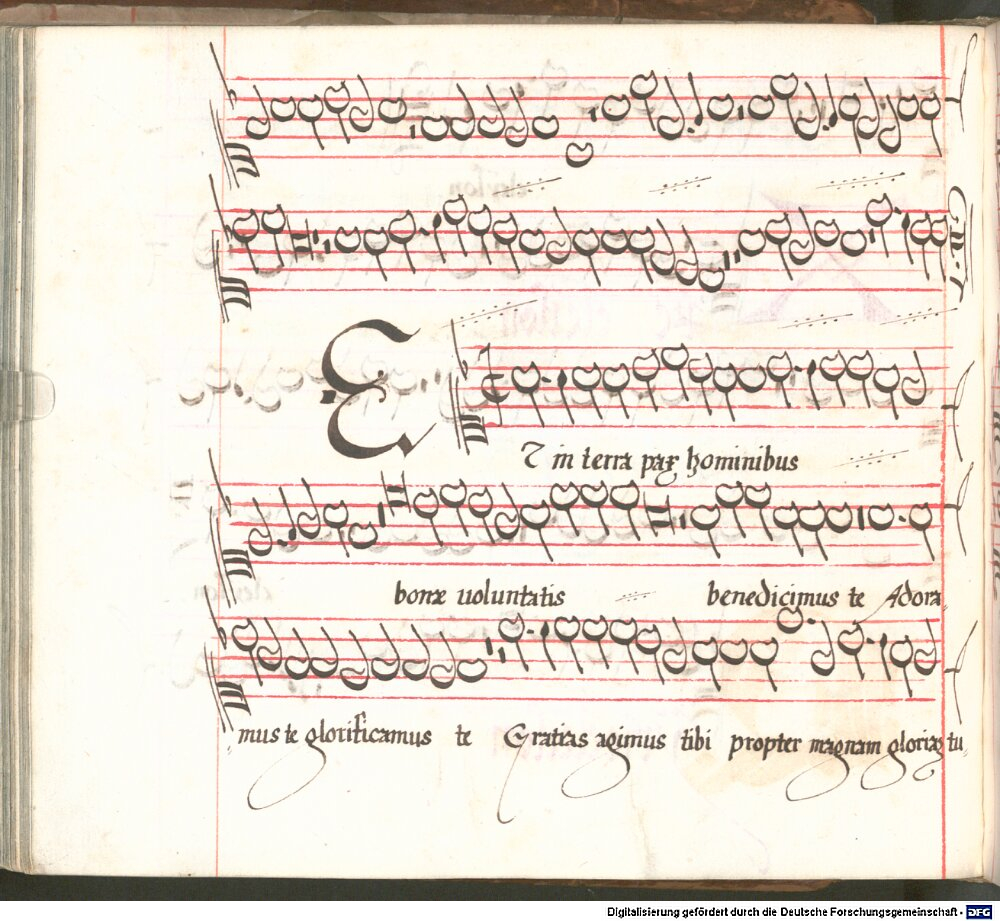 Et in terra pax hominibus
bonæ uoluntatis benedicimus te Adora
mus te glorificamus te Gratias agimus tibi propter magnam gloriã tu
Digitalisierung gefördert durch die Deutsche Forschungsgemeinschaft - DFG